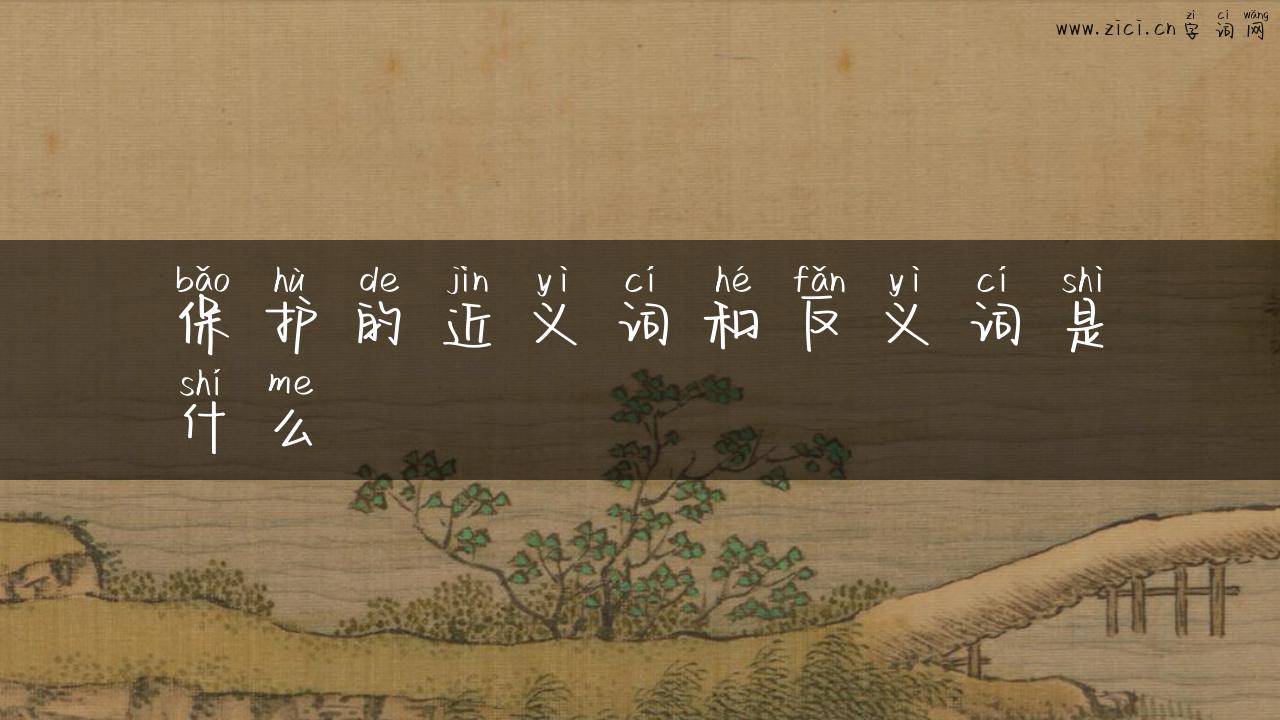 zì cí wǎng
www.zici.cn 字词网
bǎo hù de jìn yì cí hé fǎn yì cí shì
保护的近义词和反义词是
shí me
什么